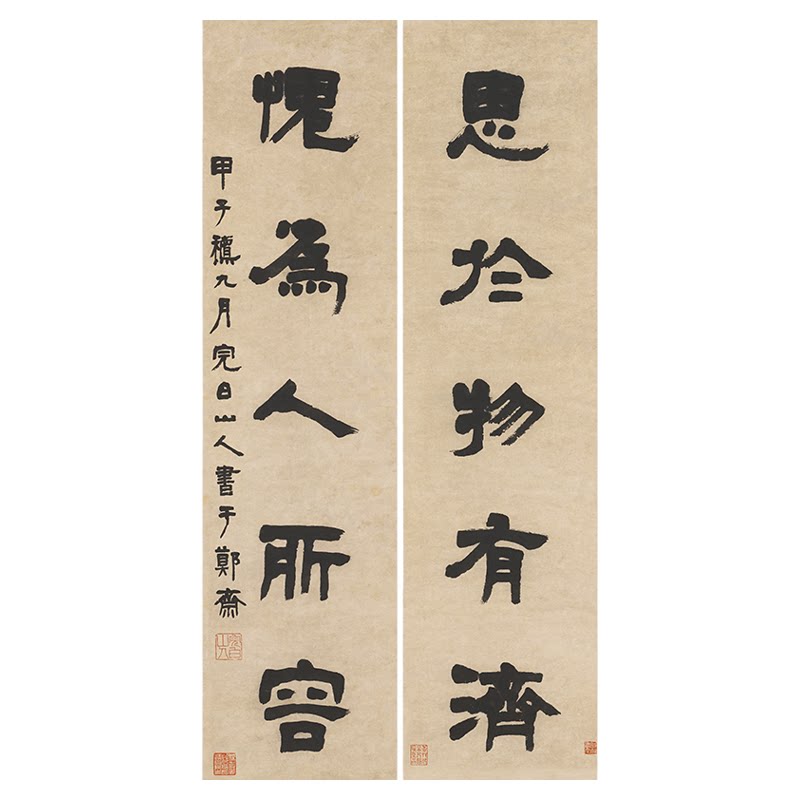 思於物有濟
愧為人所容
甲子穐九月完白山人書于鄭齋